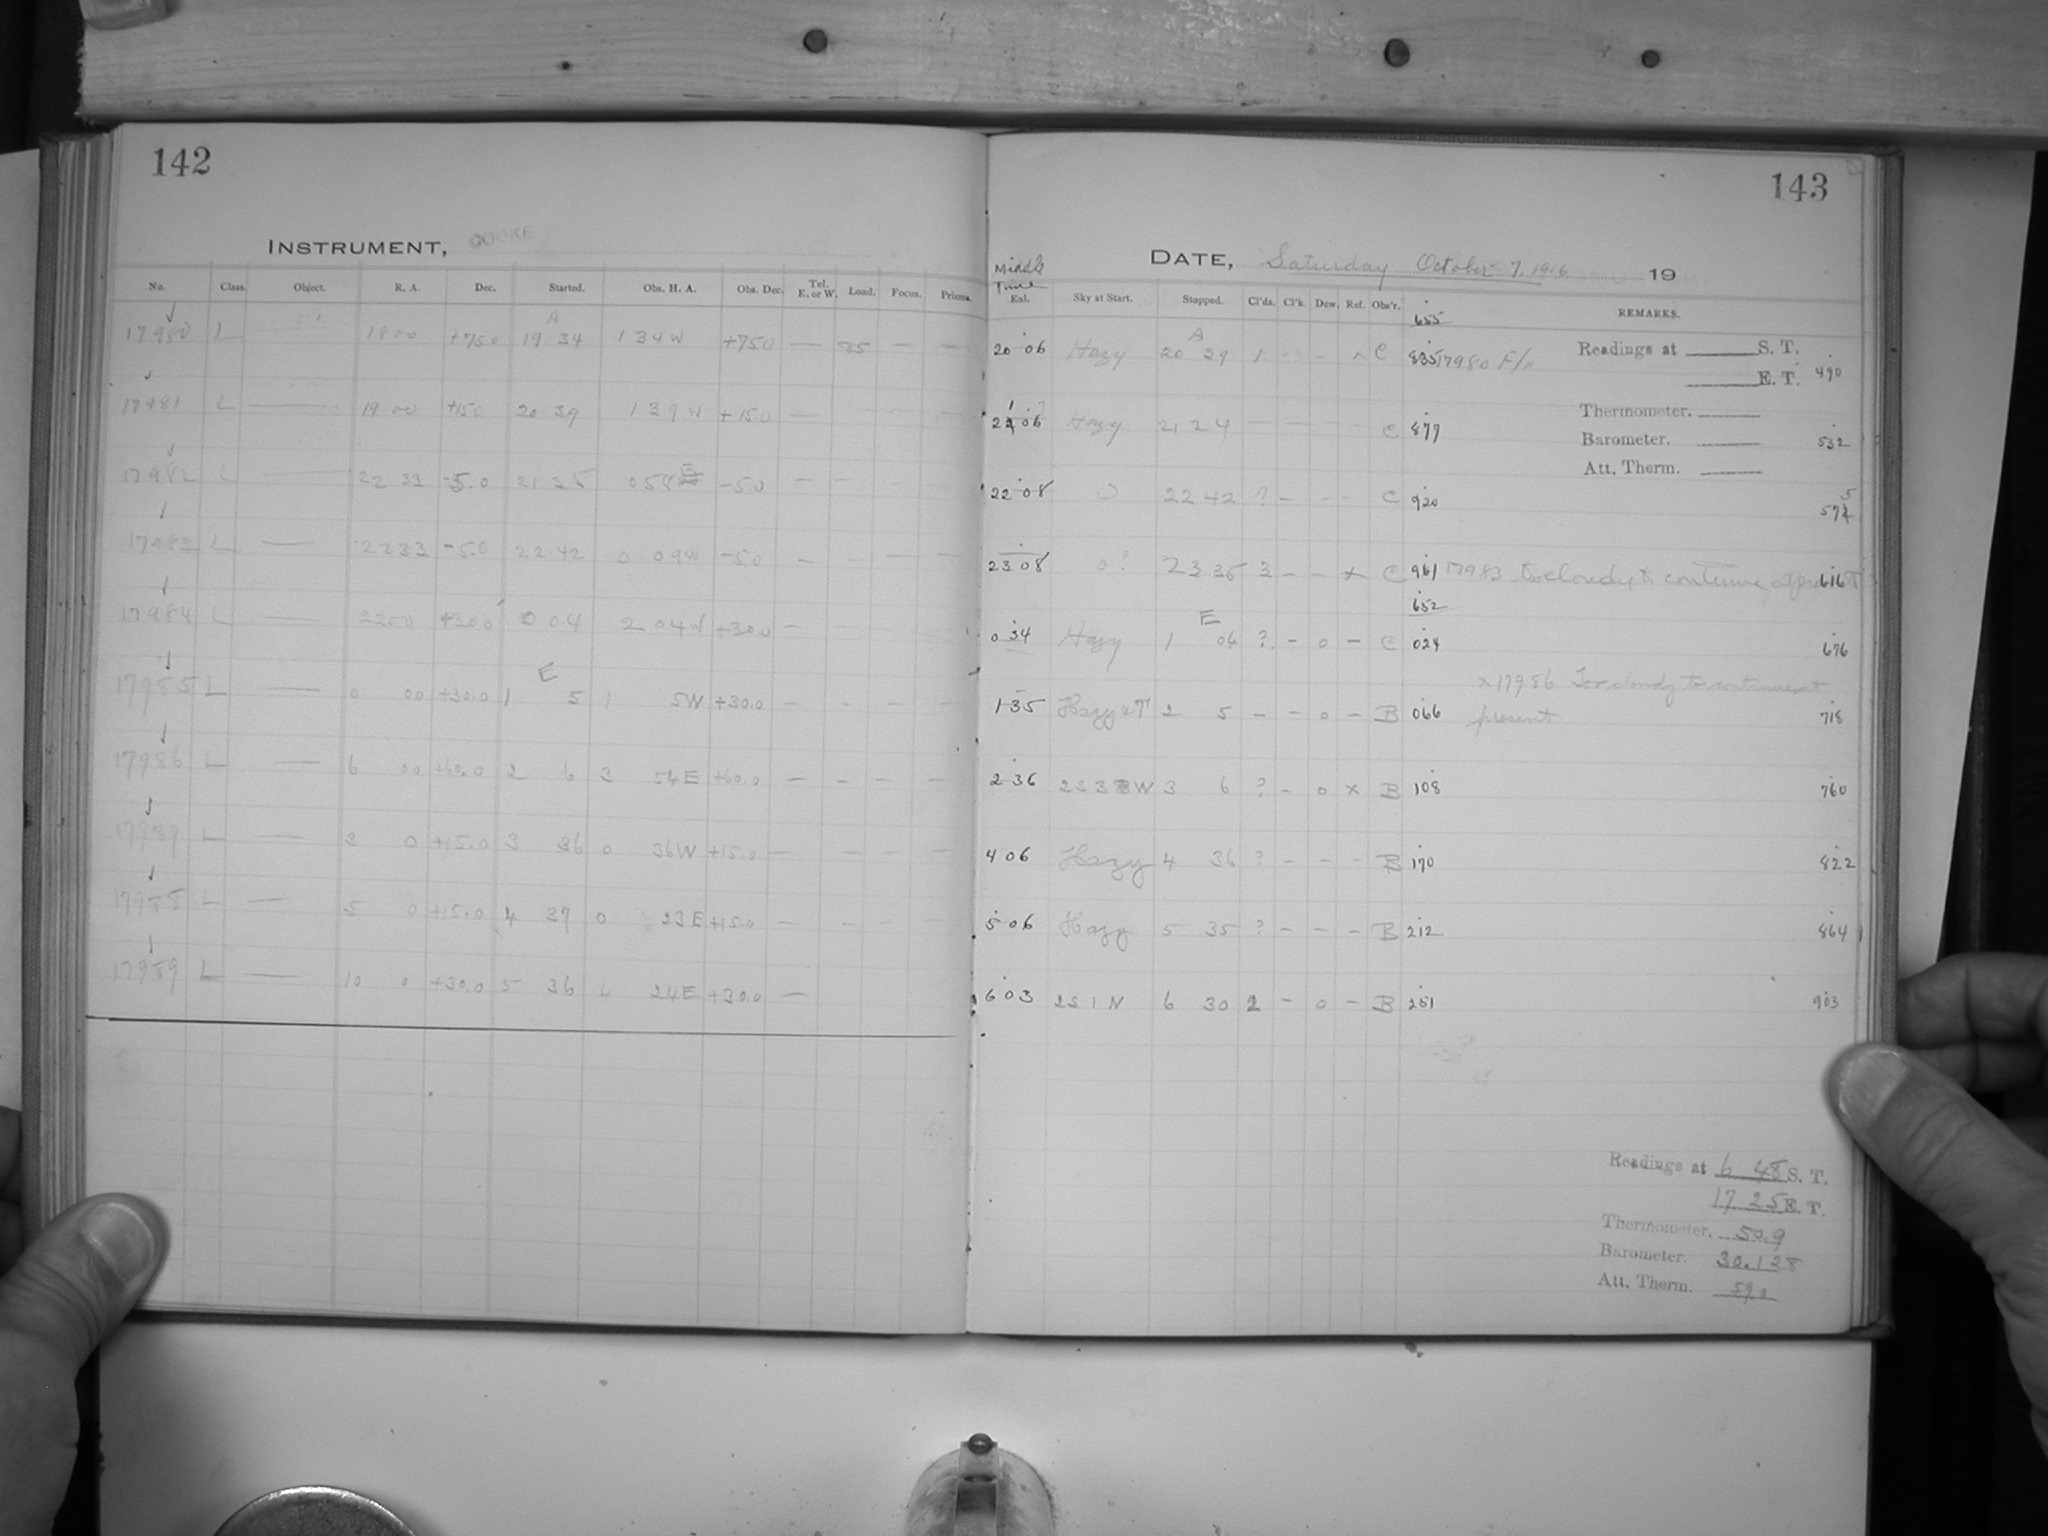 142
INSTRUMENT, COOKE
No. Class. Object. R. A. Dec. Started. Obs. H. A. Obs. Dec. Tel. E. or W. Load. Focus. Prisms.
A
17980 L — 18 00 +75.0 19 34 1 34 W +75.0 — 25 — —
17981 L — 19 00 +15.0 20 39 1 39 W +15.0 —
17982 L — 22 33 -5.0 21 35 0 58 E -5.0 — —
17983 L — 22 33 -5.0 22 42 0 09 W -5.0 — — — —
17984 L — 22 00 +30.0 0 04 2 04 W +30.0 — —
E
17985 L — 0 00 +30.0 1 5 1 5W +30.0 — - - -
17986 L — 6 00 +60.0 2 6 3 54 E +60.0 — - - -
17987 L — 3 0 +15.0 3 36 0 36W +15.0 — - - -
17988 L — 5 0 +15.0 4 37 0 23 E +15.0 — - - -
17989 L — 10 0 +30.0 5 36 4 24E +30.0 —
143
DATE, Saturday October 7, 1916 19
Middle Time
Eal. Sky at Start. Stopped. Cl'ds. Cl'k. Dew. Ref. Obs'r. REMARKS.
655
A
20 06 Hazy 20 39 1 - - C 835 17980 F/
Readings at S. T. 490
E. T.
Thermometer.
21 06 Hazy 21 24 — — — — C 877
Barometer. 532
Att. Therm.
22 08 0 22 42 ? - - - C 920 575
23 08 0? 23 35 3 - - x C 961 17983 too cloudy to continue at 616
652
E
0 34 Hazy 1 04 ? - 0 - C 024 676
x 17986 Too cloudy to continue at
1 35 Hazy 2 5 - - 0 - B 066 present 718
2 36 2S 3 W 3 6 ? - 0 x B 108 760
4 06 Hazy 4 36 ? - - - B 170 822
5 06 Hazy 5 35 ? - - - B 212 864
6 03 2S 1 N 6 30 2 - 0 - B 251 903
Readings at 6 48 S. T.
17 25 E. T.
Thermometer. 50.9
Barometer. 30.128
Att. Therm. 59.0